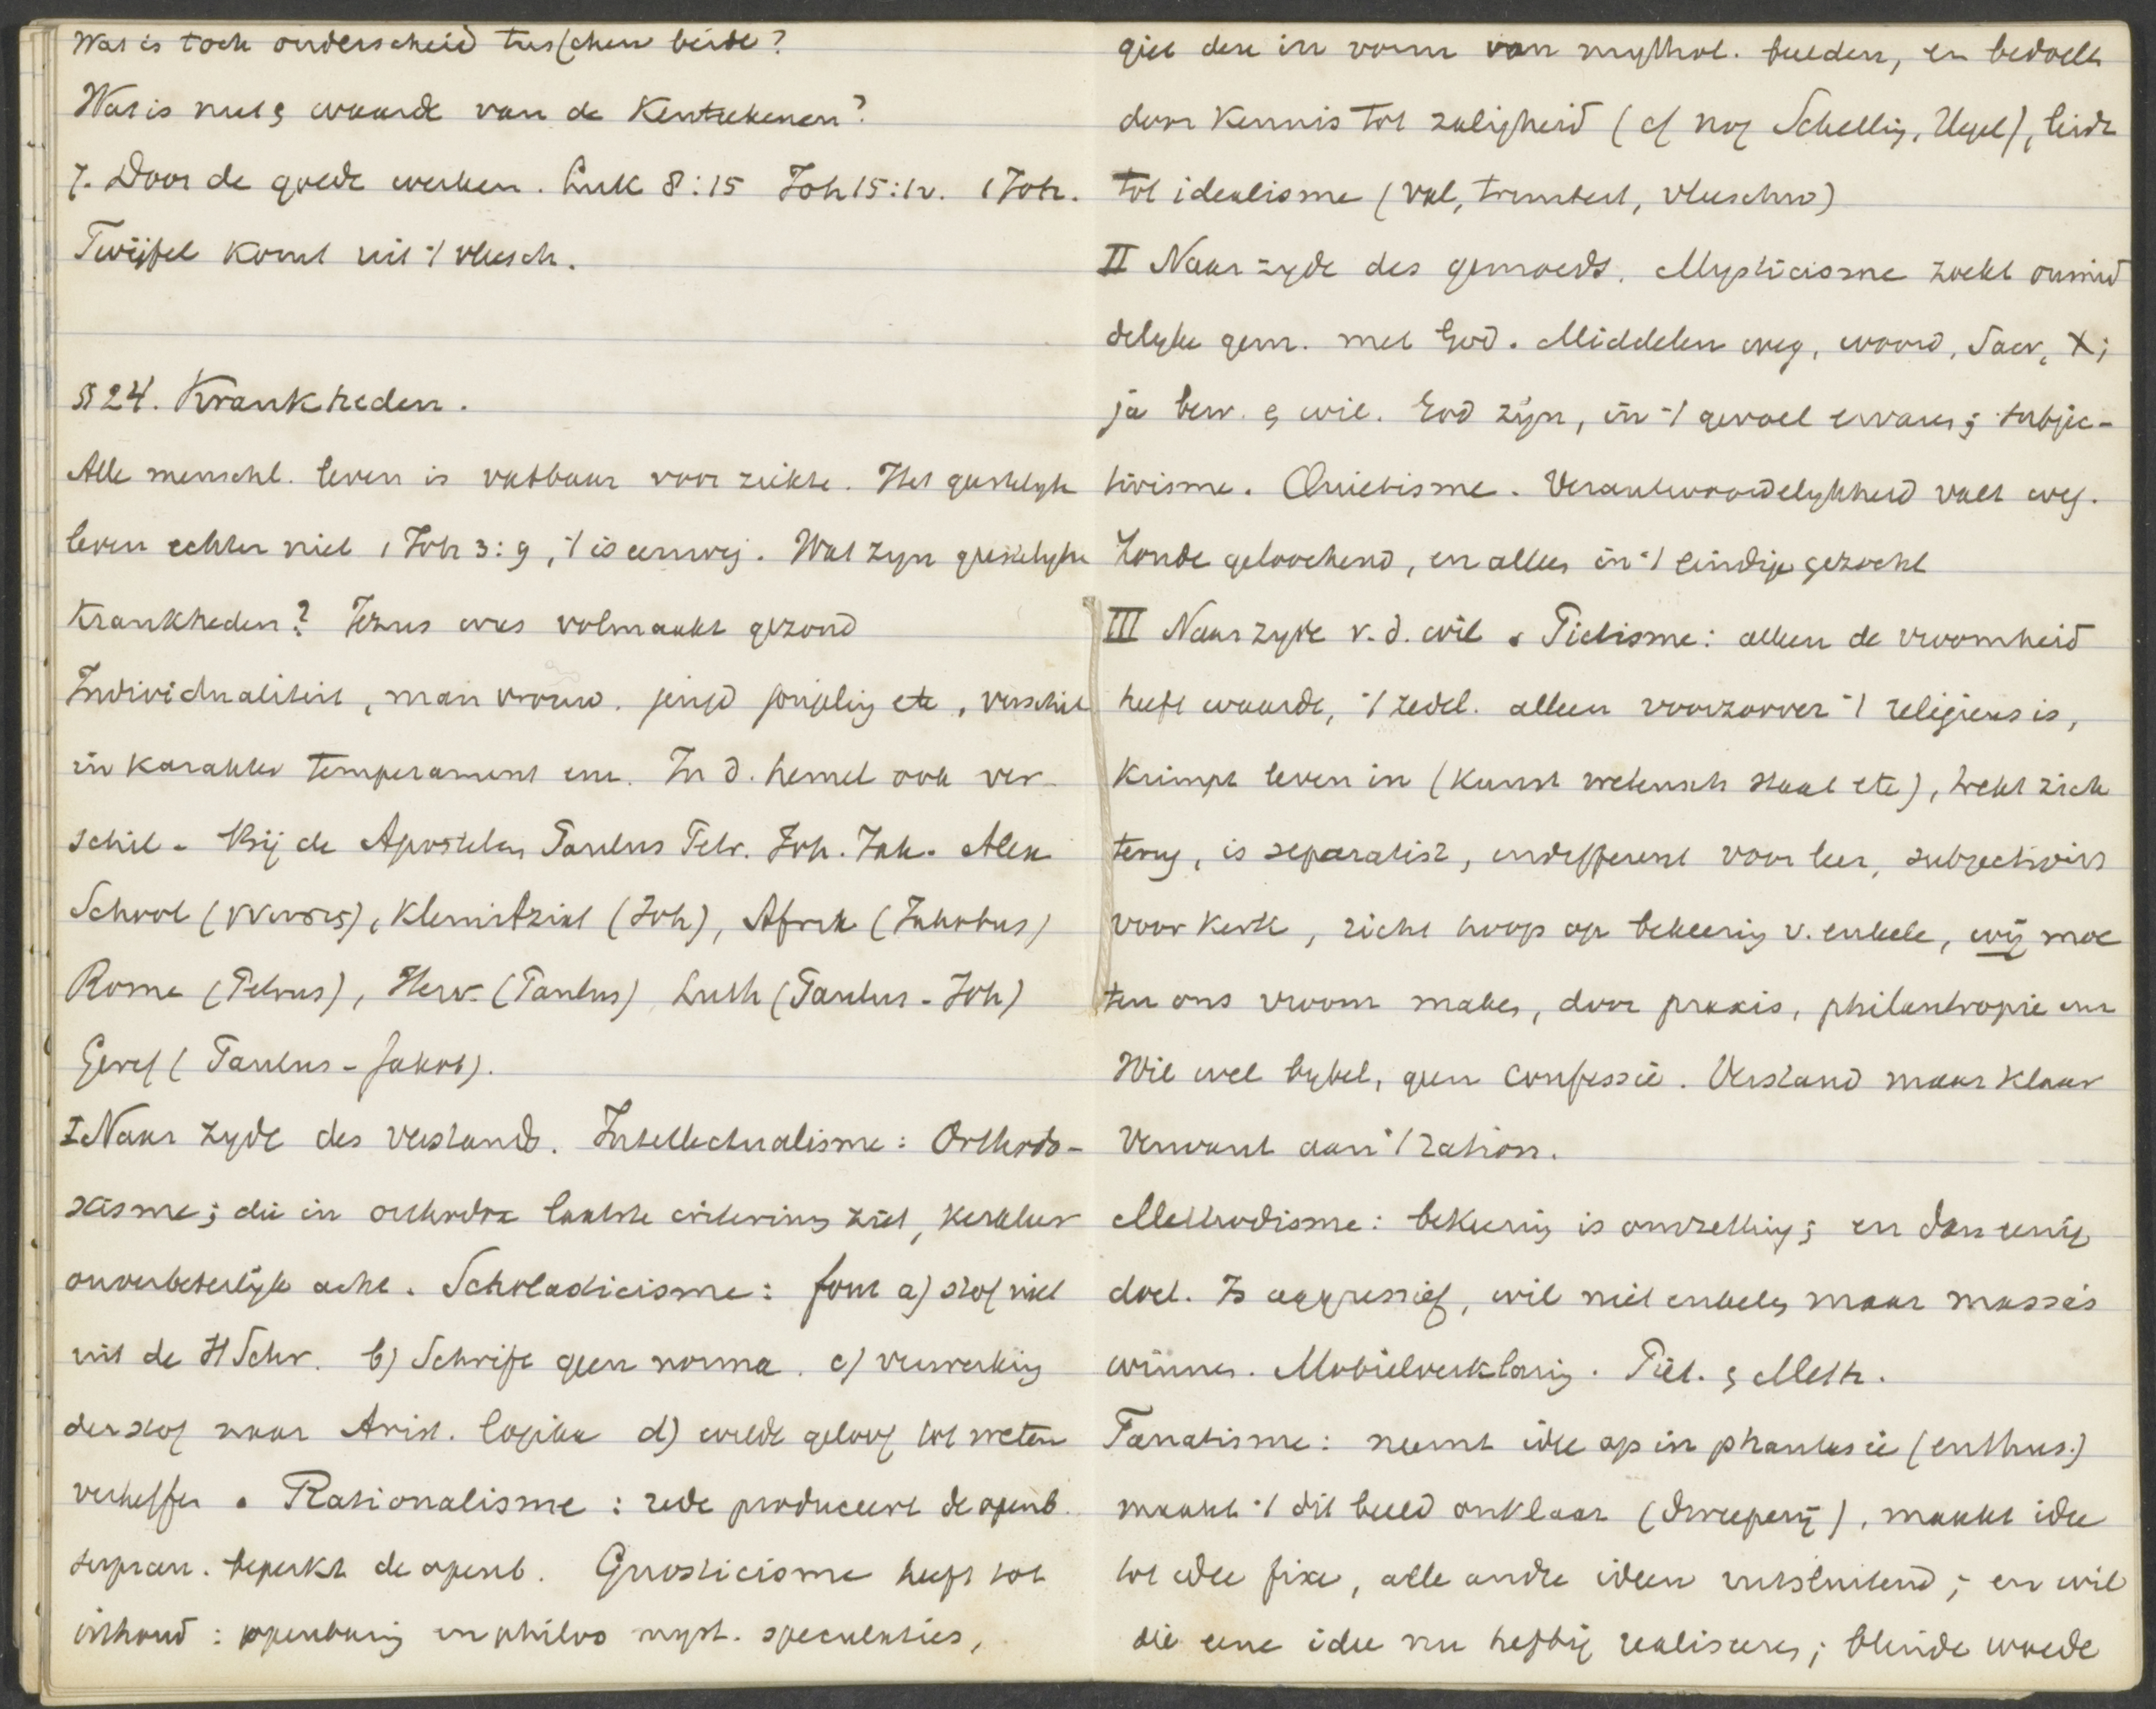 Wat is toch onderscheid tusschen beide?
Wat is nut & waarde van de Kenteekenen?
7. Door de goede werken. Luk 8:15 Joh 15:12. 1 Joh.
Twijfel komt uit 't vleesch.
§ 24. Krankheden.
Alle menschl. leven is vatbaar voor ziekte. Het geestelyk
leven echter niet 1 Joh 3:9, 't is eeuwig. Wat zyn geestelyke
Krankheden? Jezus was volmaakt gezond
Individualiteit, man vrouw. jeugd jongeling etc, verschil
in karakter temperament enz. In d. hemel ook ver-
schil - Bij de Apostelen Paulus Petr. Joh. Jak. Alex
School (γνωσις), Kleinaziat (Joh), Afrik (Jakobus)
Rome (Petrus), Herv. (Paulus) Luth (Paulus - Joh)
Geref (Paulus - Jakob).
I Naar zyde des verstands. Intellectualisme: Orthodo-
xisme; die in orthodoxie laatste criterium ziet, kerkleer
onverbeterlijk acht. Scholasticisme: fout a) stof niet
uit de H Schr. b) Schrift geen norma. c) verwerking
der stof naar Arist. logika d) wilde geloof tot weten
verheffen. Rationalisme: rede produceert de openb.
supran. beperkt de openb. Gnosticisme heeft tot
inhoud: openbaring en philos myst. speculaties,
giet deze in vorm van mythol. beelden, en bedoelt
door Kennis tot zaligheid (cf nog Schelling, Hegel), leidt
tot idealisme (val, vleeschw)
II Naar zyde des gemoeds. Mysticisme zoekt onmid
delyke gem. met God. Middelen weg, woord, Sacr, X;
ja bew. & wil. God zijn, in 't gevoel ervaren; subjec-
tivisme. Quietisme. Verantwoordelykheid valt weg.
Zonde geloochend, en alles in 't eindige gezocht
III Naar zyde v.d. wil. Pietisme: alleen de vroomheid
heeft waarde, 't zedel. alleen voorzoover 't religieus is,
Krimpt leven in (Kunst wetensch staat etc), trekt zich
terug, is separatist, indifferent voor leer, subjectivis
voor kerk, richt hoop op bekeering v. enkele, wij moe
ten ons vroom maken, door praxis, philantropie enz
Wil wel bybel, geen Confessie. Verstand maar klaar
Verwant aan 't ration.
Methodisme: bekeering is omzetting; en dan eenig
doel. Is aggressief, wil niet enkelen maar massa's
winnen. Mobielverklaring. Piet. & Meth.
Fanatisme: neemt idee op in phantasie (enthus.)
maakt 't dit beeld onklaar (dweeperij), maakt idee
tot idee fixe, alle andre ideen uitsluitend; en wil
die eene idee nu heftig realiseeren; blinde woede